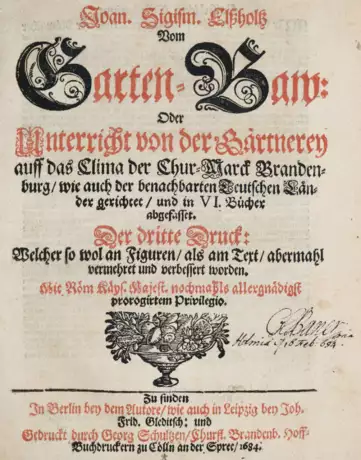 Joan. Sigism. Elßholtz
Vom
Garten-Baw:
Oder
Unterricht von der Gärtnerey
auff das Clima der Chur-Marck Branden-
burg/ wie auch der benachbarten Teutschen Län-
der gerichtet/ und in VI. Bücher
abgefasset.
Der dritte Druck:
Welcher so wol an Figuren/ als am Text/ abermahl
vermehret und verbessert worden.
Mit Röm Käys. Majest. nochmahls allergnädigst
prorogirtem Privilegio.
Zu finden
In Berlin bey dem Autore/ wie auch in Leipzig bey Joh.
Frid. Gleditsch: und
Gedruckt durch Georg Schultzen/ Churfl. Brandenb. Hoff-
Buchdruckern zu Cölln an der Spree/ 1684.